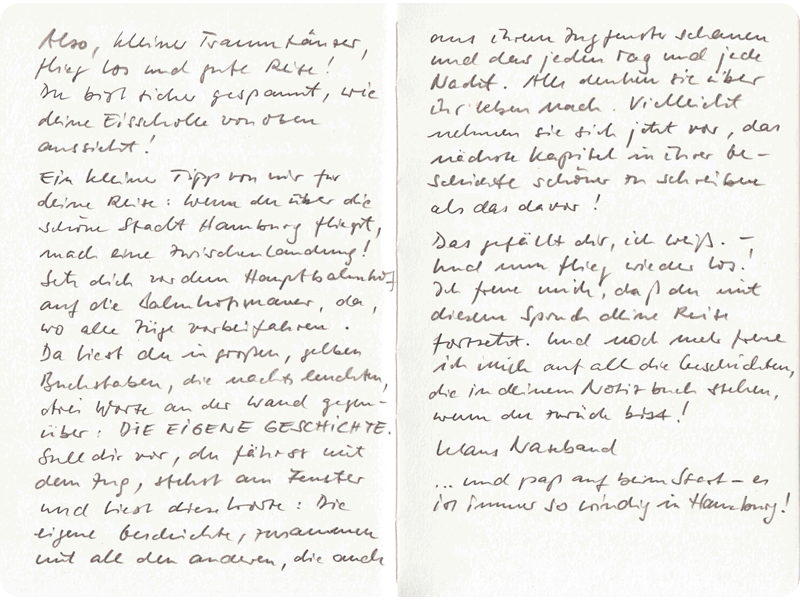 Also, kleiner Traumtänzer,
flieg los und gute Reise!
Du bist sicher gespannt, wie
deine Eisscholle von oben
aussieht!
Ein kleiner Tipp von mir für
deine Reise: Wenn du über die
schöne Stadt Hamburg fliegst,
mach eine Zwischenlandung!
Setz dich vor dem Hauptbahnhof
auf die Bahnhofsmauer, da,
wo alle Züge vorbeifahren.
Da liest du in großen, gelben
Buchstaben, die nachts leuchten,
drei Worte an der Wand gegen-
über: DIE EIGENE GESCHICHTE.
Stell dir vor, du fährst mit
dem Zug, stehst am Fenster
und liest diese Worte: Die
eigene Geschichte, zusammen
mit all den anderen, die auch
aus ihrem Zugfenster schauen
und das jeden Tag und jede
Nacht. Alle denken sie über
ihr Leben nach. Vielleicht
nehmen sie sich jetzt vor, das
nächste Kapitel in ihrer Ge-
schichte schöner zu schreiben
als das davor!
Das gefällt dir, ich weiß. –
Und nun flieg wieder los!
Ich freue mich, daß du mit
diesem Spruch deine Reise
fortsetzt. Und noch mehr freue
ich mich auf all die Geschichten,
die in deinem Notizbuch stehen,
wenn du zurück bist!
Klaus Naseband
... und paß auf beim Start – es
ist immer so windig in Hamburg!